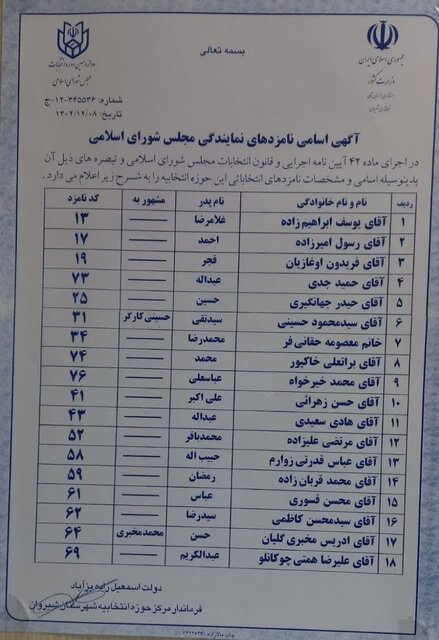 بسمه تعالی
جمهوری اسلامی ایران
وزارت کشور
دوازدهمین دوره انتخابات
مجلس شورای اسلامی
شماره: ۱۲-۳۴۵۵۳۶-ج
تاریخ: ۱۴۰۲/۱۲/۰۸
آگهی اسامی نامزدهای نمایندگی مجلس شورای اسلامی
در اجرای ماده ۴۲ آیین نامه اجرایی و قانون انتخابات مجلس شورای اسلامی و تبصره های ذیل آن
بدینوسیله اسامی و مشخصات نامزدهای انتخاباتی این حوزه انتخابیه را به شرح زیر اعلام می دارد.
ردیف نام و نام خانوادگی نام پدر مشهور به کد نامزد
۱ آقای یوسف ابراهیم زاده غلامرضا ــــــ ۱۳
۲ آقای رسول امیرزاده احمد ــــــ ۱۷
۳ آقای فریدون اوغازیان قجر ــــــ ۱۹
۴ آقای حمید جدی عبداله ــــــ ۷۳
۵ آقای حیدر جهانگیری حسین ــــــ ۲۵
۶ آقای سیدمحمود حسینی سیدتقی حسینی کارگر ۳۱
۷ خانم معصومه حقانی فر محمدرضا ــــــ ۳۴
۸ آقای براتعلی خاکپور محمد ــــــ ۷۴
۹ آقای محمد خیرخواه عباسعلی ــــــ ۷۶
۱۰ آقای حسن زهرائی علی اکبر ــــــ ۴۱
۱۱ آقای هادی سعیدی عبداله ــــــ ۴۳
۱۲ آقای مرتضی علیزاده محمدباقر ــــــ ۵۲
۱۳ آقای عباس قدرتی زوارم حبیب اله ــــــ ۵۸
۱۴ آقای محمد قربان زاده رمضان ــــــ ۵۹
۱۵ آقای محسن قسوری عباس ــــــ ۶۱
۱۶ آقای سیدمحسن کاظمی سیدرضا ــــــ ۶۲
۱۷ آقای ادریس مخبری گلیان حسن محمدمخبری ۶۴
۱۸ آقای علیرضا همتی چوکانلو عبدالکریم ــــــ ۶۹
دولت اسمعیل زاده یزآباد
فرماندار مرکز حوزه انتخابیه شهرستان شیروان